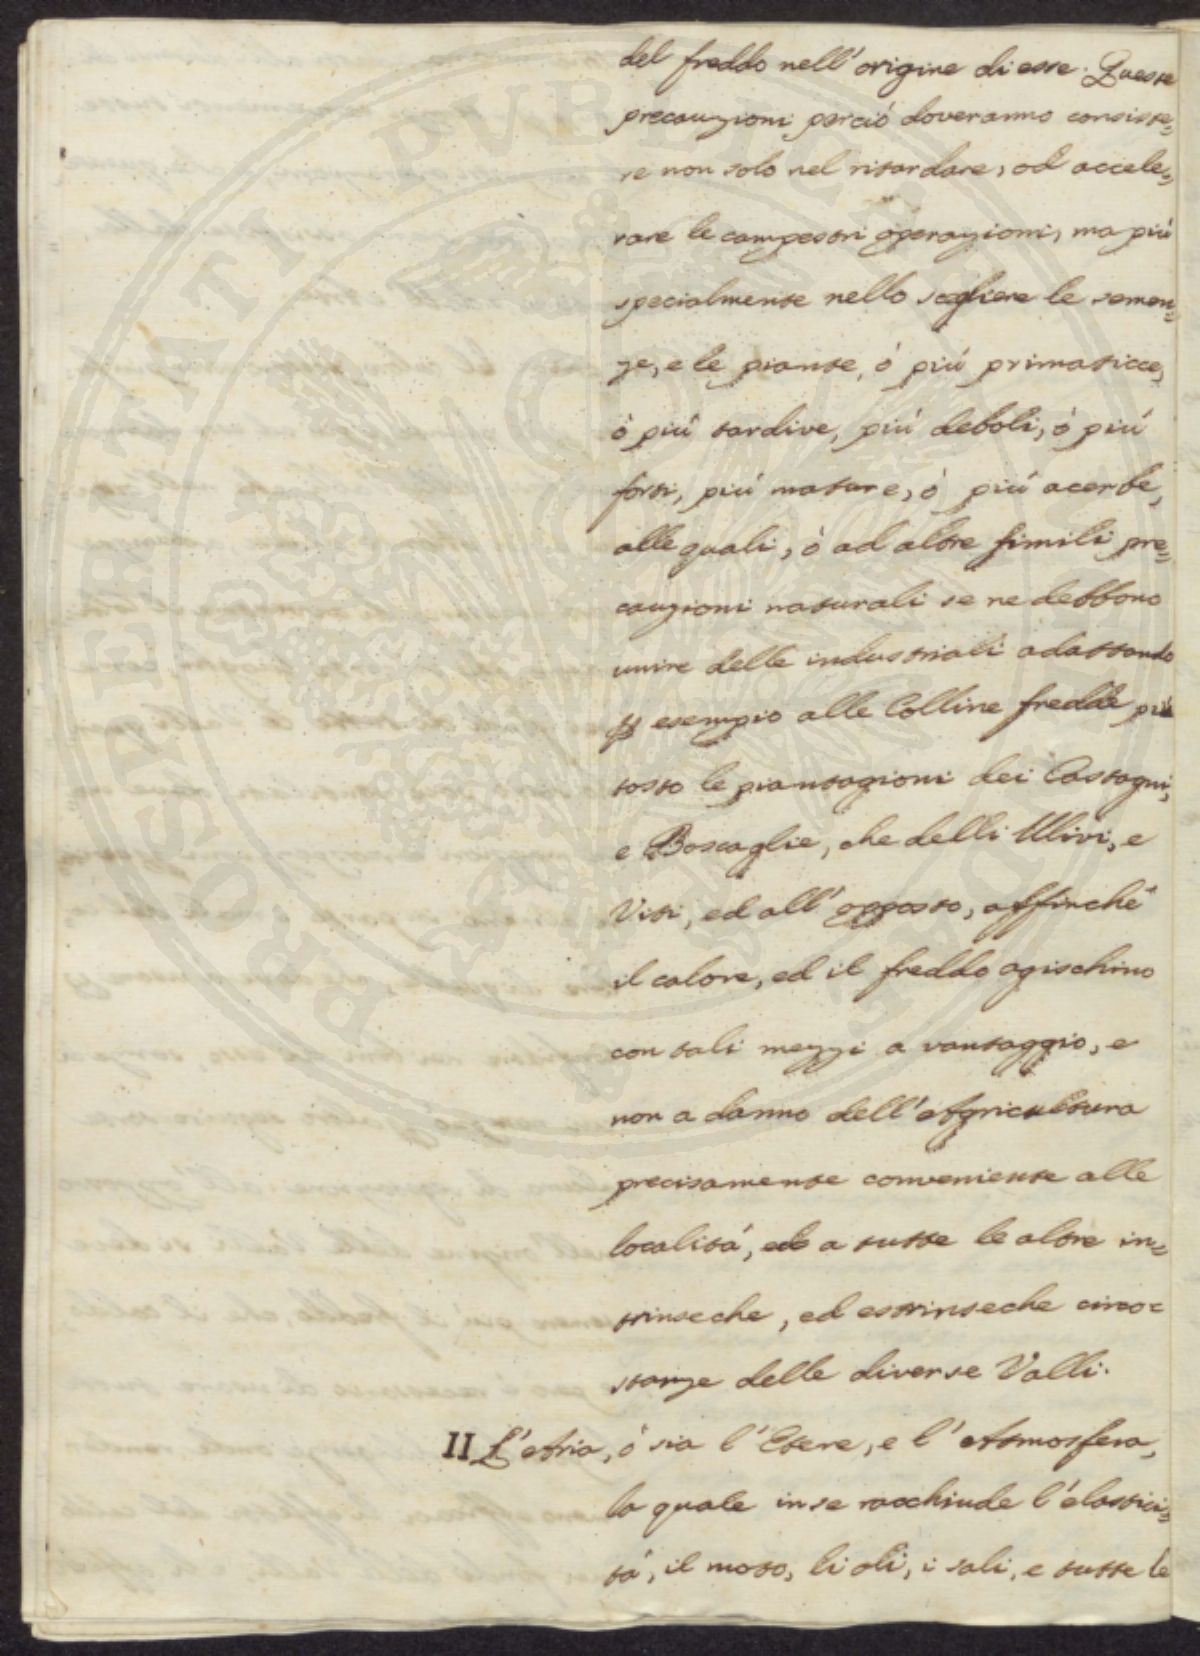 del freddo nell' origine di esse. Queste
precauzioni perció doveranno consiste=
re non solo nel ritardare, od accele=
rare le campestri operazioni, ma piú
specialmente nello scegliere le semen=
ze, e le piante, ó piú primaticce,
ó piú tardive, piú deboli, ó piú
forti, piú mature, ó piú acerbe,
alle quali, ó ad altre simili pre=
cauzioni naturali se ne debbono
unire delle industriali adattando
esempio alle Colline fredde piú
tosto le piantagioni dei Castagni,
e Boscaglie, che delli Ulivi, e
Viti, ed all' opposto, affinché
il calore, ed il freddo agischino
con tali mezzi a vantaggio, e
non a danno dell' Agricultura
precisamente conveniente alle
localitá, ed a tutte le altre in=
trinseche, ed estrinseche circo=
stanze delle diverse Valli.
II L' Aria, ó sia l' Etere, e l' Atmosfera,
la quale in se racchiude l' elastici=
tá, il moto, li olì, i sali, e tutte le
PROSPERITATI PUBLICAE